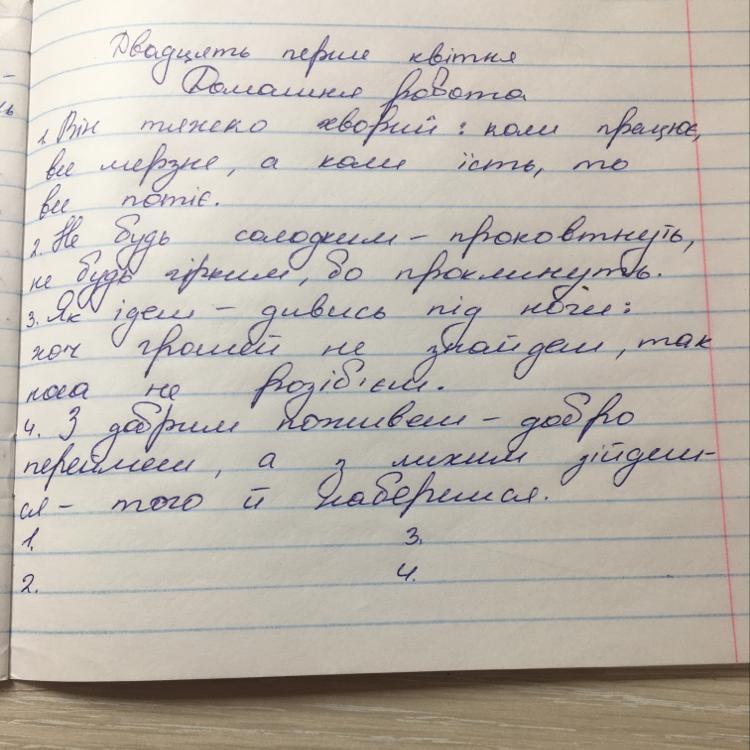 Двадцять перше квітня
Домашня робота
1. Він тяжко хворий: коли працює,
він мерзне, а коли їсть, то
він потіє.
2. Не будь солодким – проковтнуть,
не будь гірким, бо проклинуть.
3. Як ідеш – дивись під ноги:
хоч грошей не знайдеш, так
носа не розіб'єш.
4. З добрим поживеш – добро
переймеш, а з лихим зійдеш-
ся – того й наберешся.
1. 3.
2. 4.